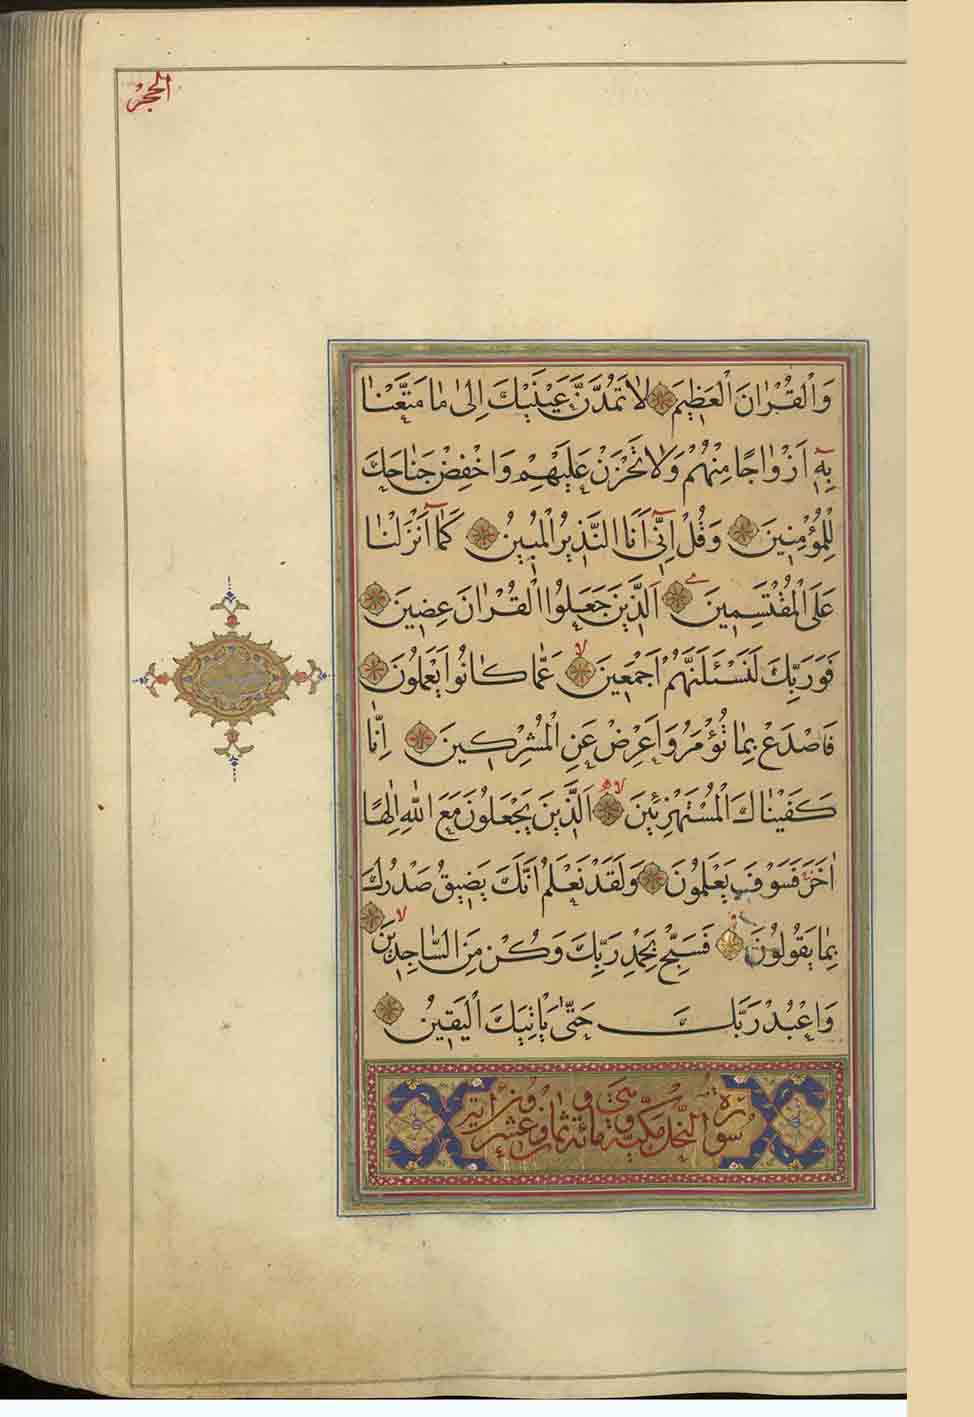 الحجر
وَالْقُرْاٰنَ الْعَظِيمَ لَا تَمُدَّنَّ عَيْنَيْكَ اِلٰى مَا مَتَّعْنَا
بِهٓ اَزْوَاجًا مِنْهُمْ وَلَا تَحْزَنْ عَلَيْهِمْ وَاخْفِضْ جَنَاحَكَ
لِلْمُؤْمِنِينَ وَقُلْ اِنّٓى اَنَا النَّذِيرُ الْمُبِينُ كَمٓا اَنْزَلْنَا
عَلَى الْمُقْتَسِمِينَ اَلَّذِينَ جَعَلُوا الْقُرْاٰنَ عِضِينَ
فَوَرَبِّكَ لَنَسْئَلَنَّهُمْ اَجْمَعِينَ عَمَّا كَانُوا يَعْمَلُونَ
فَاصْدَعْ بِمَا تُؤْمَرُ وَاَعْرِضْ عَنِ الْمُشْرِكِينَ اِنَّا
كَفَيْنَاكَ الْمُسْتَهْزِئِينَ اَلَّذِينَ يَجْعَلُونَ مَعَ اللّٰهِ اِلٰهًا
اٰخَرَ فَسَوْفَ يَعْلَمُونَ وَلَقَدْ نَعْلَمُ اَنَّكَ يَضِيقُ صَدْرُكَ
بِمَا يَقُولُونَ فَسَبِّحْ بِحَمْدِ رَبِّكَ وَكُنْ مِنَ السَّاجِدِينَ
وَاعْبُدْ رَبَّكَ حَتّٰى يَاْتِيَكَ الْيَقِينُ
سورة النحل مكية وهى مائة وثمان وعشرون اية